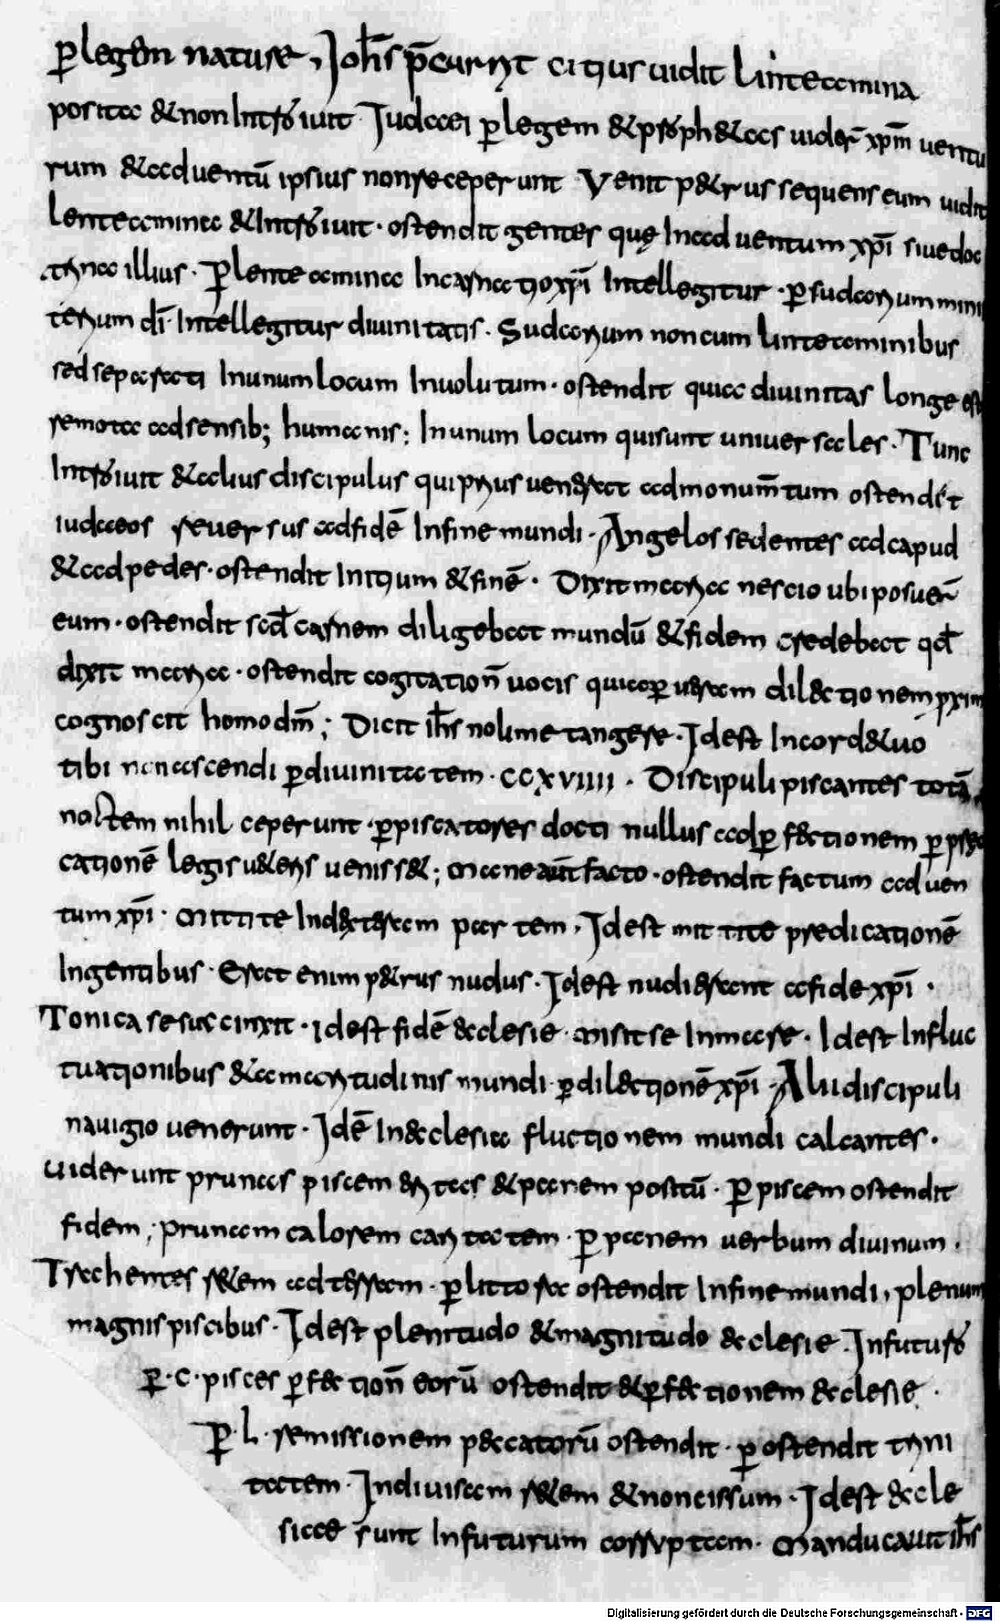 p̱ legem nature. Joh̅s p̅currit citius uidit linteamina
posita &non intrauit Judaei p̱ legem &proph&as uider̅ xp̅m uentu
rum &aduentū ipsius non receperunt Venit p&rus sequens eum uidit
lenteamina &intrauit· ostendit gentes quę in aduentum xp̅i siue doc
trina illius· P̱ lenteamina incarnatio xp̅i intellegitur· p̱ sudarium mini
terium di̅ intellegitur diuinitatis· Sudarium non cum linteaminibus
sed separati in unum locum inuolutum· ostendit quia diuinitas longe est
remota ad sensib; humanis; in unum locum qui sunt uniuersales· Tunc
intrauit &alius discipulus qui prius uenerat ad monum̅tum ostendit
iudaeos reuersus ad fidē in fine mundi· Angelos sedentes ad capud
&ad pedes· ostendit initium &finē· Dixit maria nescio ubi posuer̅
eum· ostendit scd̅ carnem diligebat mundū &fidem credebat qd̅
dixit maria· ostendit cogitation̅ uocis quia p̱ ueram dil&tionem
cognoscit homo dm̅; Dicit ih̅s noli me tangere· Idest in cord& uo
tibi non ascendi p̱ diuinitatem· CCXVIIII· Discipuli piscantes totā
noctem nihil ceperunt· p̱ piscatores docti nullus ad p̱f&tionem p̱
cationē legis u&eris ueniss&; mane aut̅ facto· ostendit factum aduen
tum xp̅i· mittite in dexteram partem· Idest mittite predicationē
in gentibus· Erat enim p&rus nudus· Idest nudi erant a fide xp̅i·
Tonica se succinxit· idest fidē &clesie· misit se in mare· Idest in fluc
tuationibus &amaritudinis mundi p̱ dil&tionē xp̅i· Alii discipuli
nauigio uenerunt· Idē in &clesia fluctionem mundi calcantes·
uiderunt prunas piscem &panem positū· P̱ piscem ostendit
fidem; prunam calorem caritatem· P̱ panem uerbum diuinum·
Trahentes r&em ad terram· p̱ littora ostendit in fine mundi, plenum
magnis piscibus· Idest plenitudo &magnitudo &clesie· In futuro
P̱·C·pisces p̱f&tion̅ eorū ostendit &p̱f&tionem &clesie·
P̱·L·remissionem p&catorū ostendit· p̱ ostendit trini
tatem· Indiuisam r&em &non cissum· Idest &cle
siae sunt in futurum corruptam· Manducauit ih̅s
Digitalisierung gefördert durch die Deutsche Forschungsgemeinschaft - DFG